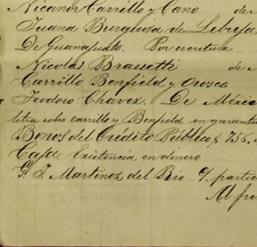 Nicanor Carrillo y Cano de
Juana Burguesa de Lebrija
De Guanajuato. Por escritura
Nicolas Brassetti de
Carrillo Benfield y Orosco
Teodoro Chavez. De México
letra sobre Carrillo y Benfield en garantia
Bonos del Crédito Público $ 735.
Caja Existencia en dinero
P. J. Martinez del Rio
Al fre